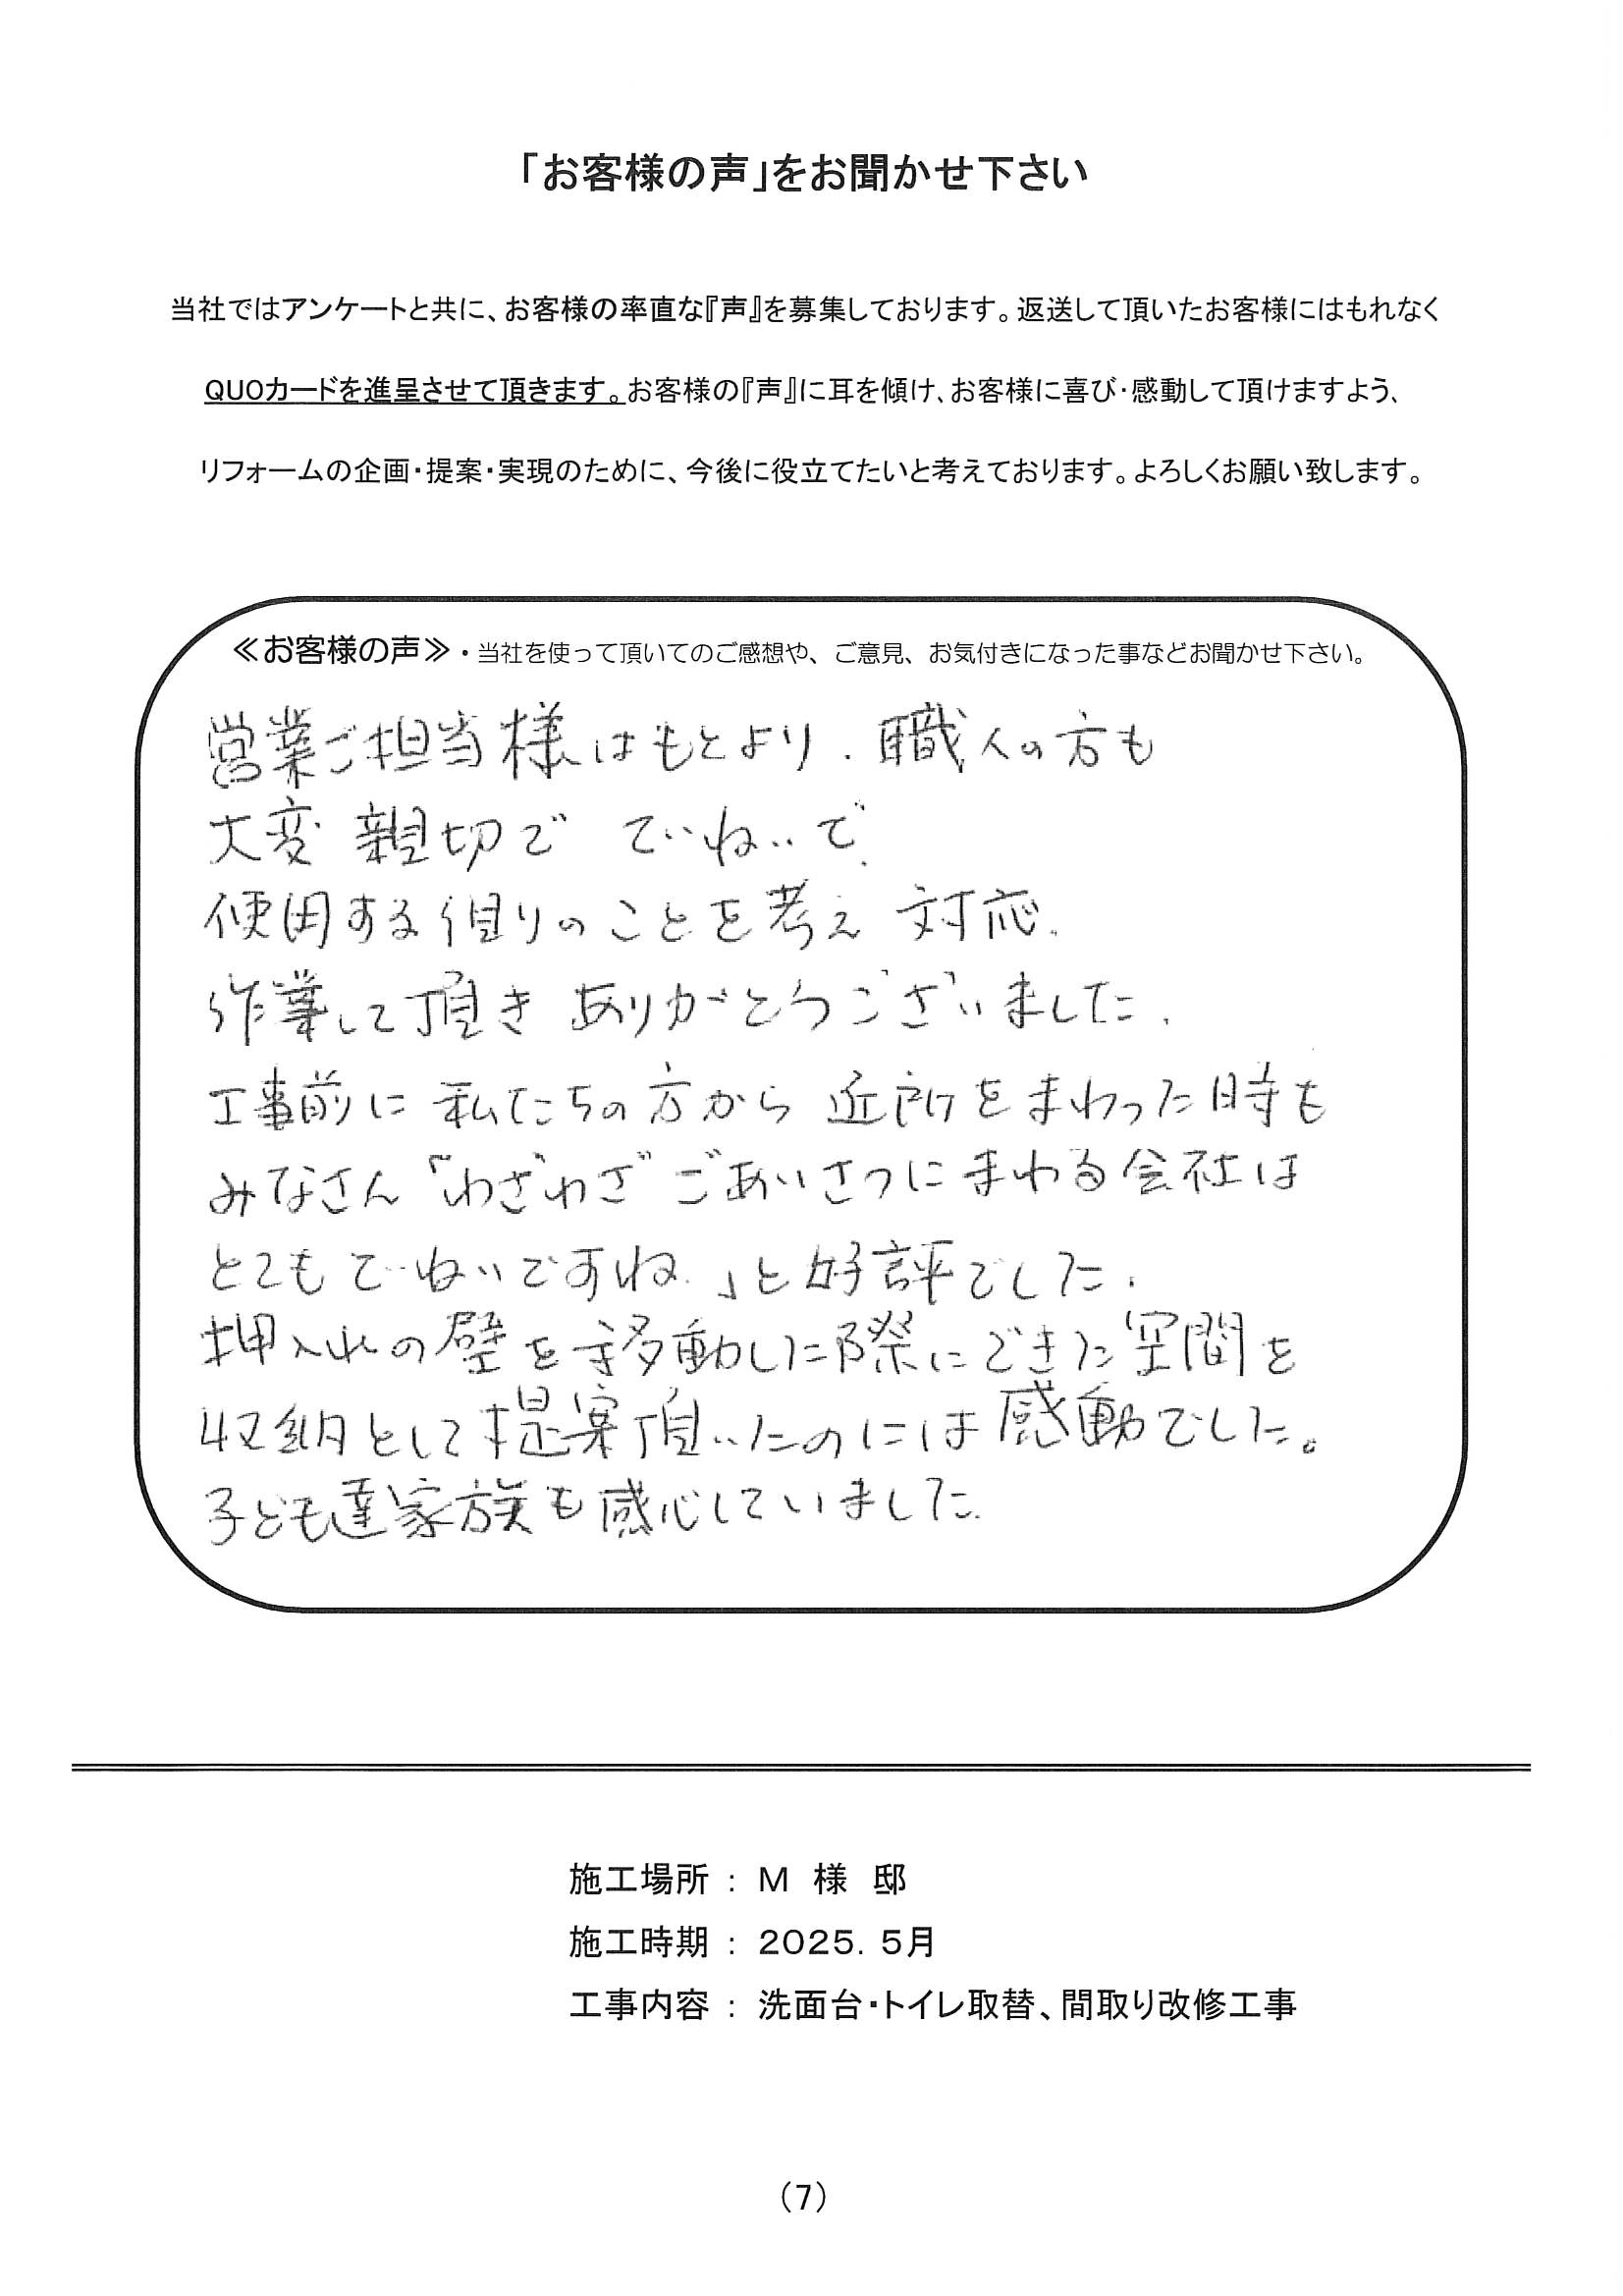 「お客様の声」をお聞かせ下さい
当社ではアンケートと共に、お客様の率直な『声』を募集しております。返送して頂いたお客様にはもれなく
QUOカードを進呈させて頂きます。お客様の『声』に耳を傾け、お客様に喜び・感動して頂けますよう、
リフォームの企画・提案・実現のために、今後に役立てたいと考えております。よろしくお願い致します。
≪お客様の声≫・当社を使って頂いてのご感想や、ご意見、お気付きになった事などお聞かせ下さい。
営業ご担当様はもとより、職人の方も
大変 親切で ていねいで、
使用する側りのことを考え 対応、
作業して頂き ありがとうございました。
工事前に 私たちの方から 近所をまわった時も
みなさん「わざわざ ごあいさつに まわる会社は
とてもていねいですね。」と好評でした。
押入れの壁を移動した際にできた空間を
収納として提案頂いたのには感動でした。
子ども達家族も感心していました。
施工場所 : M 様 邸
施工時期 : 2025. 5月
工事内容 : 洗面台・トイレ取替、間取り改修工事
(7)